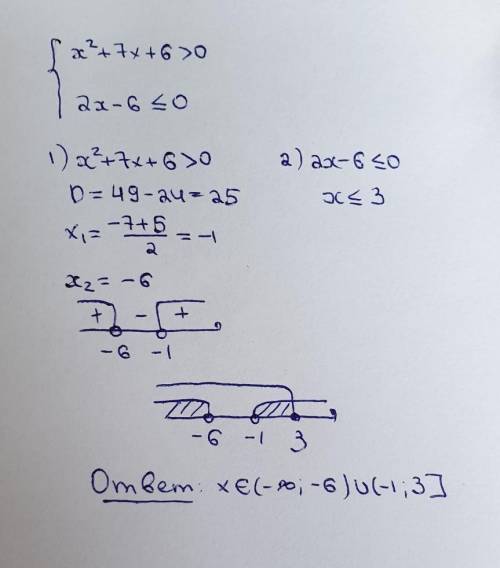 { x²+7x+6>0
2x-6≤0
1) x²+7x+6>0
D=49-24=25
x₁=(-7+5)/2=-1
x₂=-6
+ - +
-6 -1
2) 2x-6≤0
x≤3
-6 -1 3
Ответ: x∈(-∞;-6)∪(-1;3]